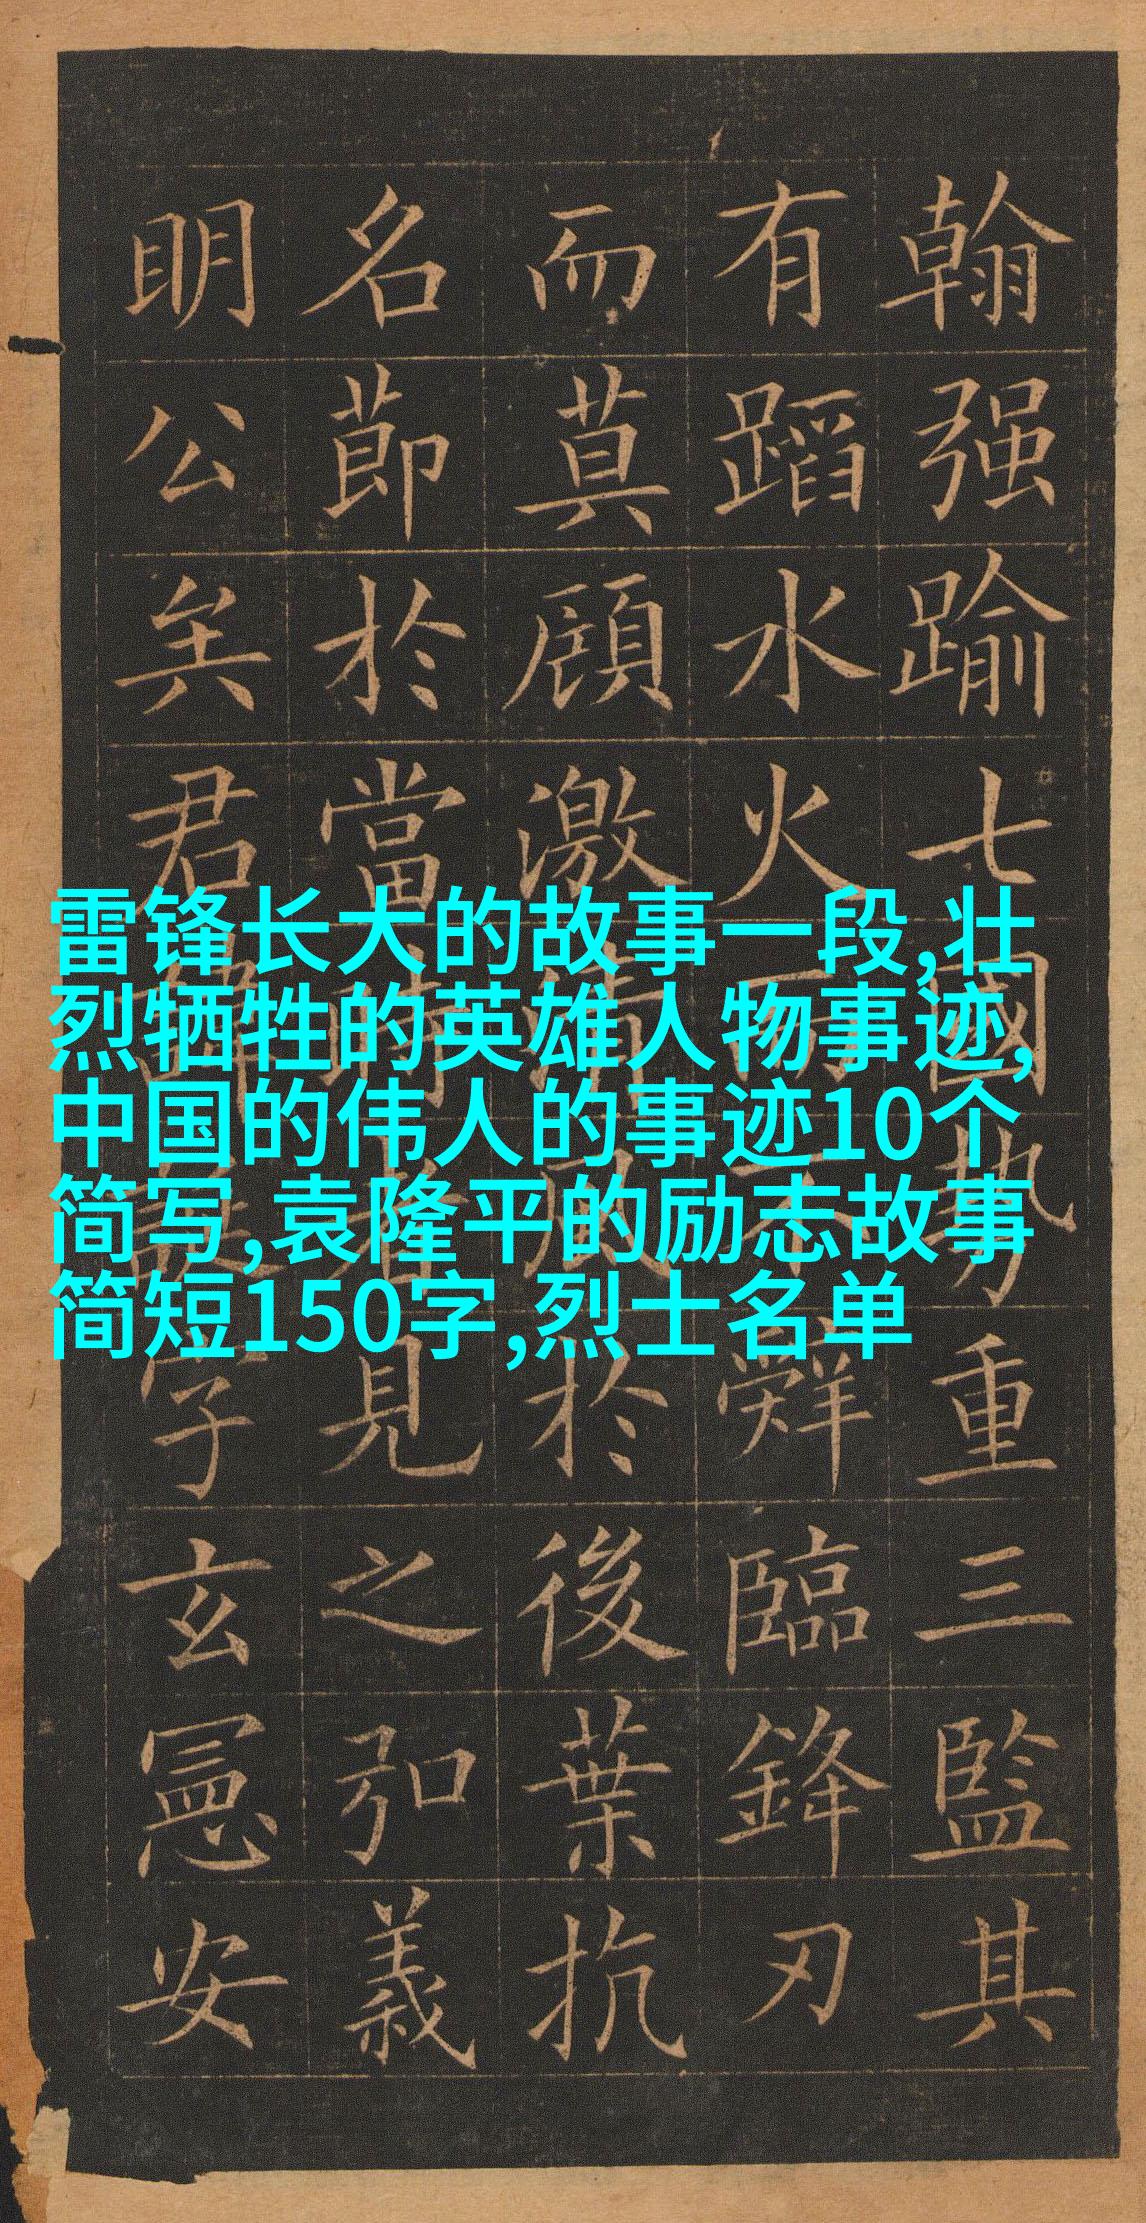 翰强踰七國勢重三監其
有蹈水火而不辭臨鋒刃
而莫顧激清風於後葉抗
名節於當時者見之弘義
明公矣君諱誕字玄憲安
雷锋长大的故事一段,壮
烈牺牲的英雄人物事迹,
中国的伟人的事迹10个
简写,袁隆平的励志故事
简短150字,烈士名单